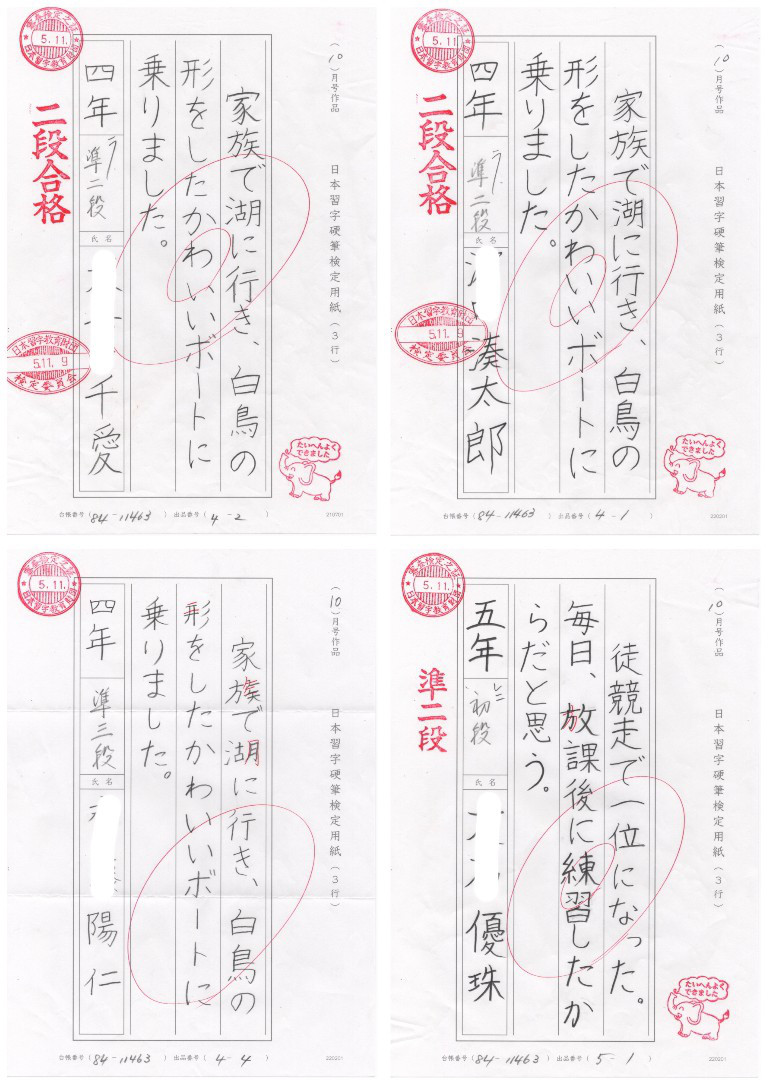 (10)月号作品
日本習字硬筆検定用紙(3行)
家族で湖に行き、白鳥の
形をしたかわいいボートに
乗りました。
四年
準二段
氏名
千愛
5.11.
日本習字教育財団
二段合格
日本習字教育財団
5.11.9
検定委員会
たいへんよく
できました
台帳番号(84-11463) 出品番号(4-2)
210701
(10)月号作品
日本習字硬筆検定用紙(3行)
家族で湖に行き、白鳥の
形をしたかわいいボートに
乗りました。
四年
準二段
氏名
湊太郎
5.11.
日本習字教育財団
二段合格
日本習字教育財団
5.11.9
検定委員会
たいへんよく
できました
台帳番号(84-11463) 出品番号(4-1)
220201
(10)月号作品
日本習字硬筆検定用紙(3行)
家族で湖に行き、白鳥の
形をしたかわいいボートに
乗りました。
四年
準三段
氏名
陽仁
5.11.
日本習字教育財団
台帳番号(84-11463) 出品番号(4-4)
220201
(10)月号作品
日本習字硬筆検定用紙(3行)
徒競走で一位になった。
毎日、放課後に練習したか
らだと思う。
五年
初段
氏名
優珠
5.11.
日本習字教育財団
準二段
たいへんよく
できました
台帳番号(84-11463) 出品番号(5-1)
220201